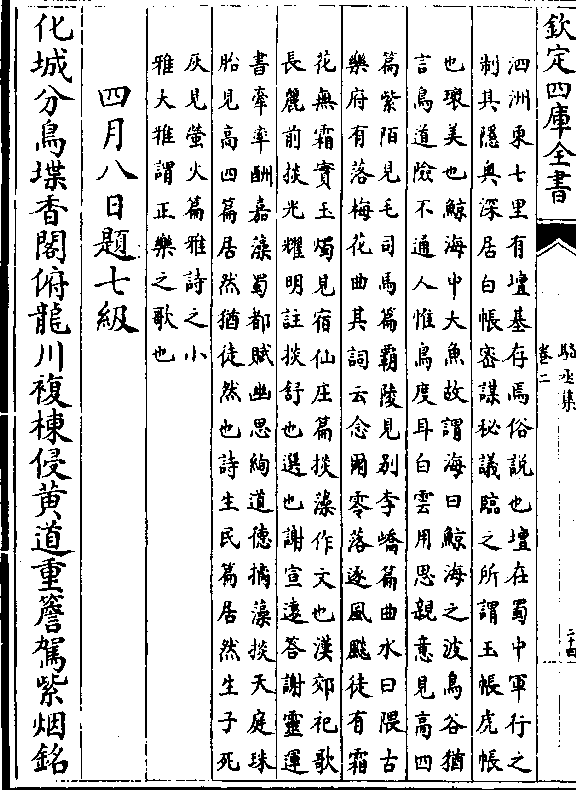 欽定四庫全書
駱丞集
卷二
二十四
泗洲東七里有壇基存焉俗說也壇在蜀中軍行之
制其隱奥深居白帳密謀秘議臨之所謂玉帳虎帳
也瓌美也鯨海中大魚故謂海曰鯨海之波鳥谷猶
言鳥道險不通人惟鳥度耳白雲用思親意見高四
篇紫陌見毛司馬篇霸陵見别李嶠篇曲水曰隈古
樂府有落梅花曲其詞云念爾零落逐風飈徒有霜
花無霜實玉燭見宿仙庄篇掞藻作文也漢郊祀歌
長麗前掞光耀明註掞舒也選也謝宣遠答謝靈運
書牽率酬嘉藻蜀都賦幽思絢道德摛藻掞天庭珠
胎見高四篇居然猶徒然也詩生民篇居然生子死
灰見螢火篇雅詩之小
雅大雅謂正樂之歌也
四月八日題七級
化城分鳥堞香閣俯龍川複棟侵黄道重簷駕紫烟銘